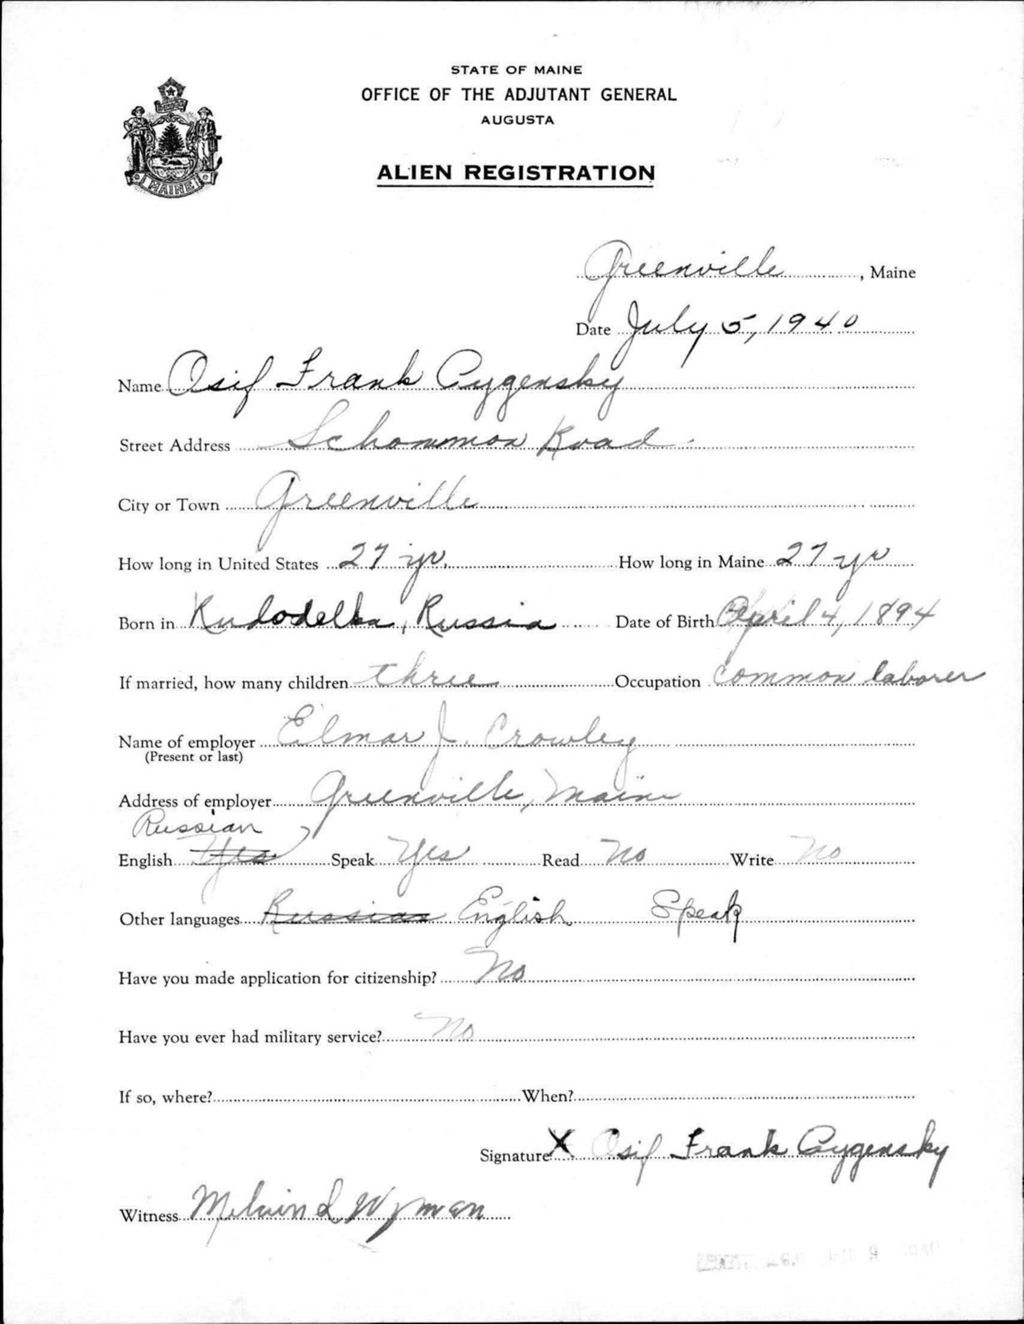 STATE OF MAINE
OFFICE OF THE ADJUTANT GENERAL
AUGUSTA
ALIEN REGISTRATION
MAINE
Greenville, Maine
Date July 5, 1940
Name Osif Frank Cyzensky
Street Address Road
City or Town Greenville
How long in United States 27 yr. How long in Maine 27 yr
Born in Kudodelka, Russia Date of Birth April 4, 1894
If married, how many children three Occupation common laborer
Name of employer Elmar J. Crowley
(Present or last)
Address of employer Greenville, Maine
Russian
English Yes Speak Yes Read No Write No
Other languages Russian English Speak
Have you made application for citizenship? No
Have you ever had military service? No
If so, where? When?
Signature X Osif Frank Cyzensky
Witness Melvin L Wyman